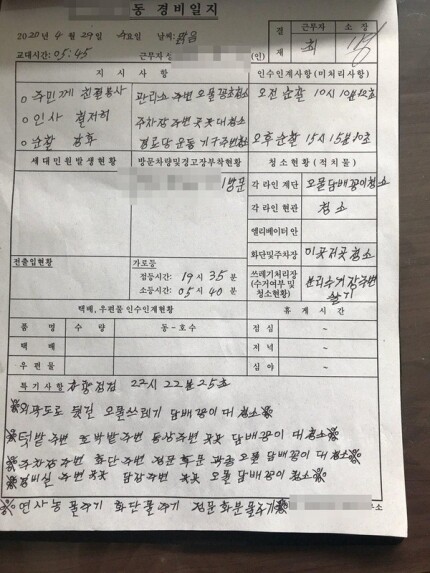 동 경비일지
2020년 4월 29일 수요일 날씨: 맑음
결재 근무자 소장
교대시간: 05:45 근무자 성 (인)
지시사항 인수인계사항(미처리사항)
○ 주민께 친절봉사 관리소 주변 오물 담배꽁초 청소 오전 순찰 10시 10분
○ 인사 철저히 주차장주변 곳곳 대청소
○ 순찰 강화 경로당 운동기구주변청소 오후순찰 15시 15분
세대민원발생현황 방문차량및경고장부착현황 청소현황(적치물)
방문 각 라인 계단 오물담배꽁이청소
각 라인 현관 청소
엘리베이터 안
화단및주차장 이곳저곳청소
전출입현황 가로등
점등시간: 19시 35분
소등시간: 05시 40분
쓰레기처리장 (수거여부 및 청소현황) 분리수거장주변
택배, 우편물 인수인계현황 휴게시간
품명 수량 동-호수 점심 ~
택배 저녁 ~
우편물 심야 ~
특기사항 점검 23시 22분 25초
※외곽도로 뒷길 오물쓰레기 담배꽁이 대청소※
※텃밭주변 호박밭주변 동산주변 곳곳 담배꽁이 대청소※
※주차장주변 화단주변 정문 후문 오물 담배꽁이 대청소※
※경비실주변 곳곳 담장주변 곳곳 오물 담배꽁이 청소※
※연사농 물주기 화단물주기 정문화분물주기※ 주소